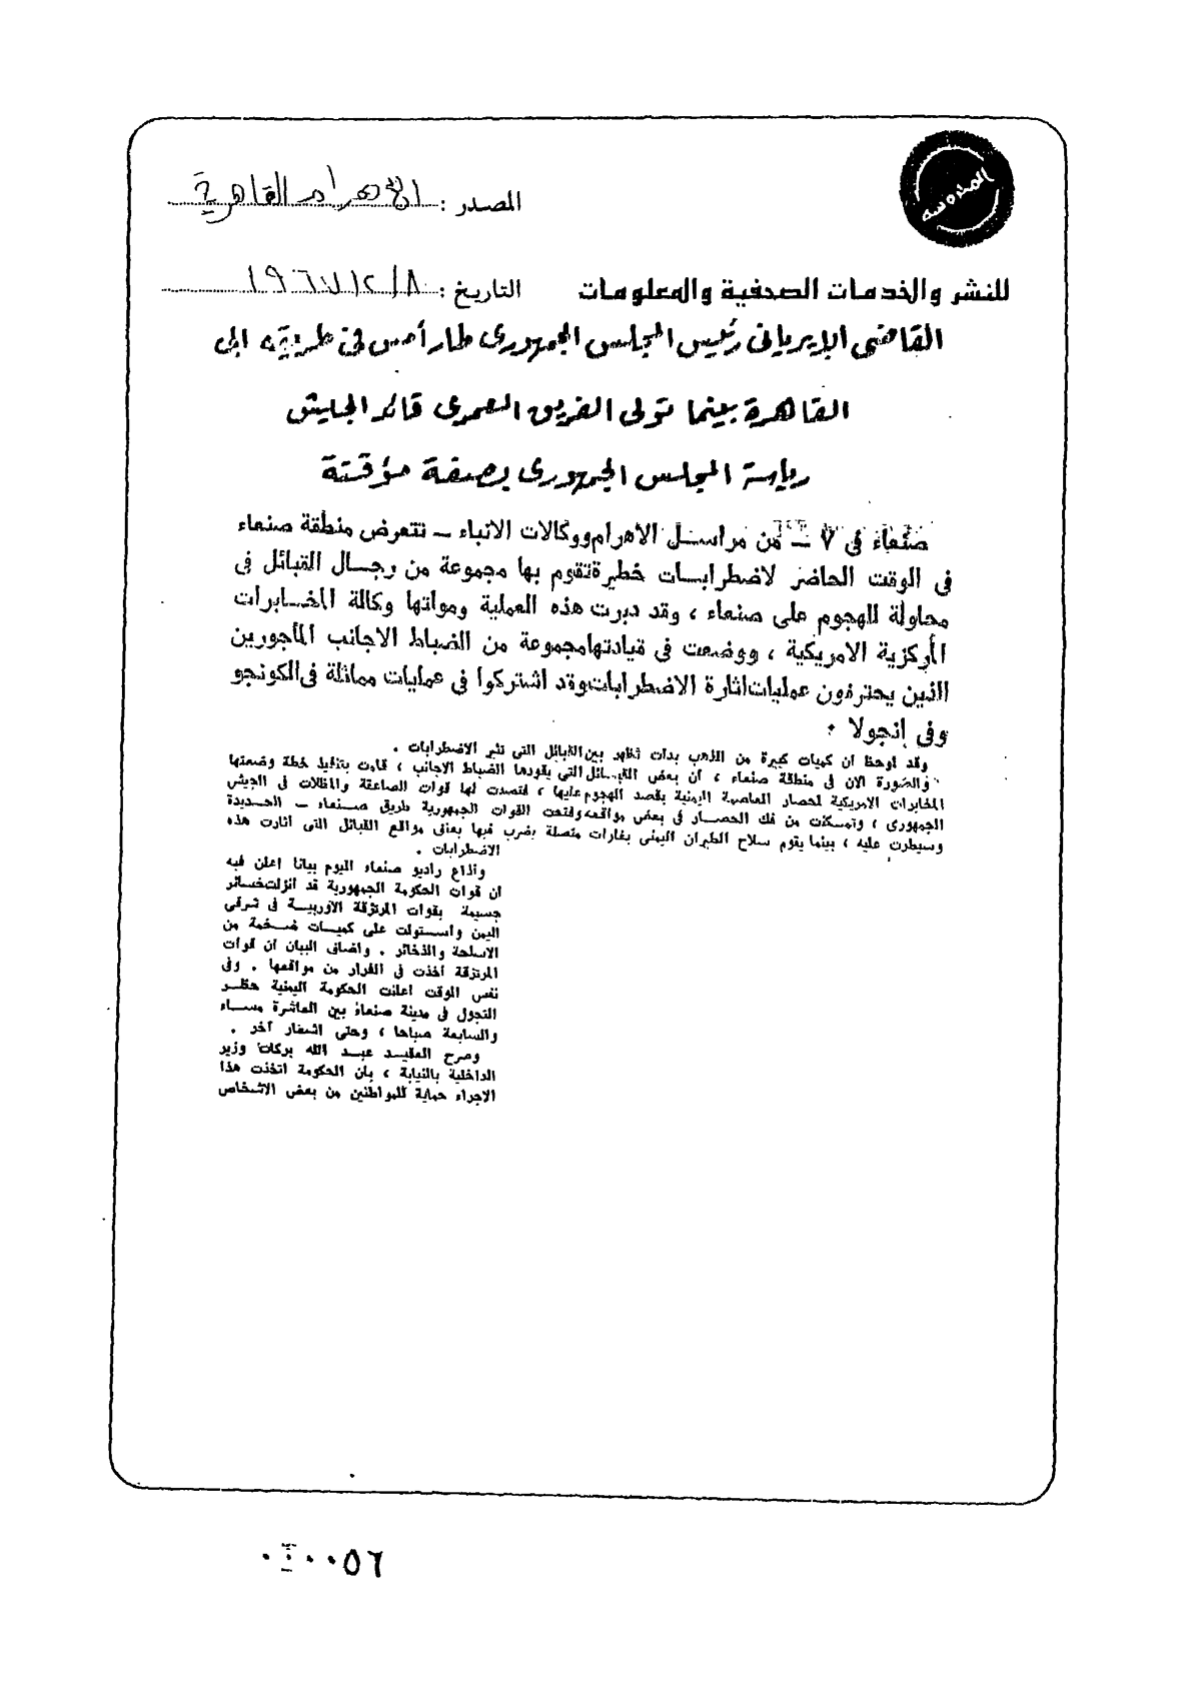 المحروسة
المصدر : الأهرام القاهرية
للنشر والخدمات الصحفية والمعلومات
التاريخ : ١٩٦٧/١٢/٨
القاضى الإيريانى رئيس المجلس الجمهورى طار أمس فى طريقه الى
القاهرة بينما تولى الفريق العمرى قائد الجيش
رياسة المجلس الجمهورى بصفة مؤقتة
صنعاء فى ٧ – من مراسل الاهرام ووكالات الانباء – تتعرض منطقة صنعاء
فى الوقت الحاضر لاضطرابات خطيرة تقوم بها مجموعة من رجال القبائل فى
محاولة للهجوم على صنعاء ، وقد دبرت هذه العملية ومولتها وكالة المخابرات
المركزية الامريكية ، ووضعت فى قيادتها مجموعة من الضباط الاجانب المأجورين
الذين يحترفون عمليات اثارة الاضطرابات وقد اشتركوا فى عمليات مماثلة فى الكونجو
وفى إنجولا .
وقد لوحظ ان كميات كبيرة من الذهب بدأت تظهر بين القبائل التى تثير الاضطرابات .
والصورة الان فى منطقة صنعاء ، أن بعض القبائل التى يقودها الضباط الاجانب ، قامت بتنفيذ خطة وضعتها
المخابرات الامريكية لحصار العاصمة اليمنية بقصد الهجوم عليها ، فتصدت لها قوات الصاعقة والمظلات فى الجيش
الجمهورى ، وتمكنت من فك الحصار فى بعض مواقعه وفتحت القوات الجمهورية طريق صنعاء – الحديدة
وسيطرت عليه ، بينما يقوم سلاح الطيران اليمنى بغارات متصلة يضرب فيها بعنف مواقع القبائل التى اثارت هذه
الاضطرابات .
وأذاع راديو صنعاء اليوم بيانا اعلن فيه
ان قوات الحكومة الجمهورية قد انزلت خسائر
جسيمة بقوات المرتزقة الاوربية فى شرقى
اليمن واستولت على كميات ضخمة من
الاسلحة والذخائر . واضاف البيان ان قوات
المرتزقة أخذت فى الفرار من مواقعها . وفى
نفس الوقت اعلنت الحكومة اليمنية حظر
التجول فى مدينة صنعاء بين العاشرة مساء
والسابعة صباحا ، وحتى اشعار آخر .
وصرح العقيد عبد الله بركات وزير
الداخلية بالنيابة ، بأن الحكومة اتخذت هذا
الاجراء حماية للمواطنين من بعض الاشخاص
٠٠٠٠٥٦